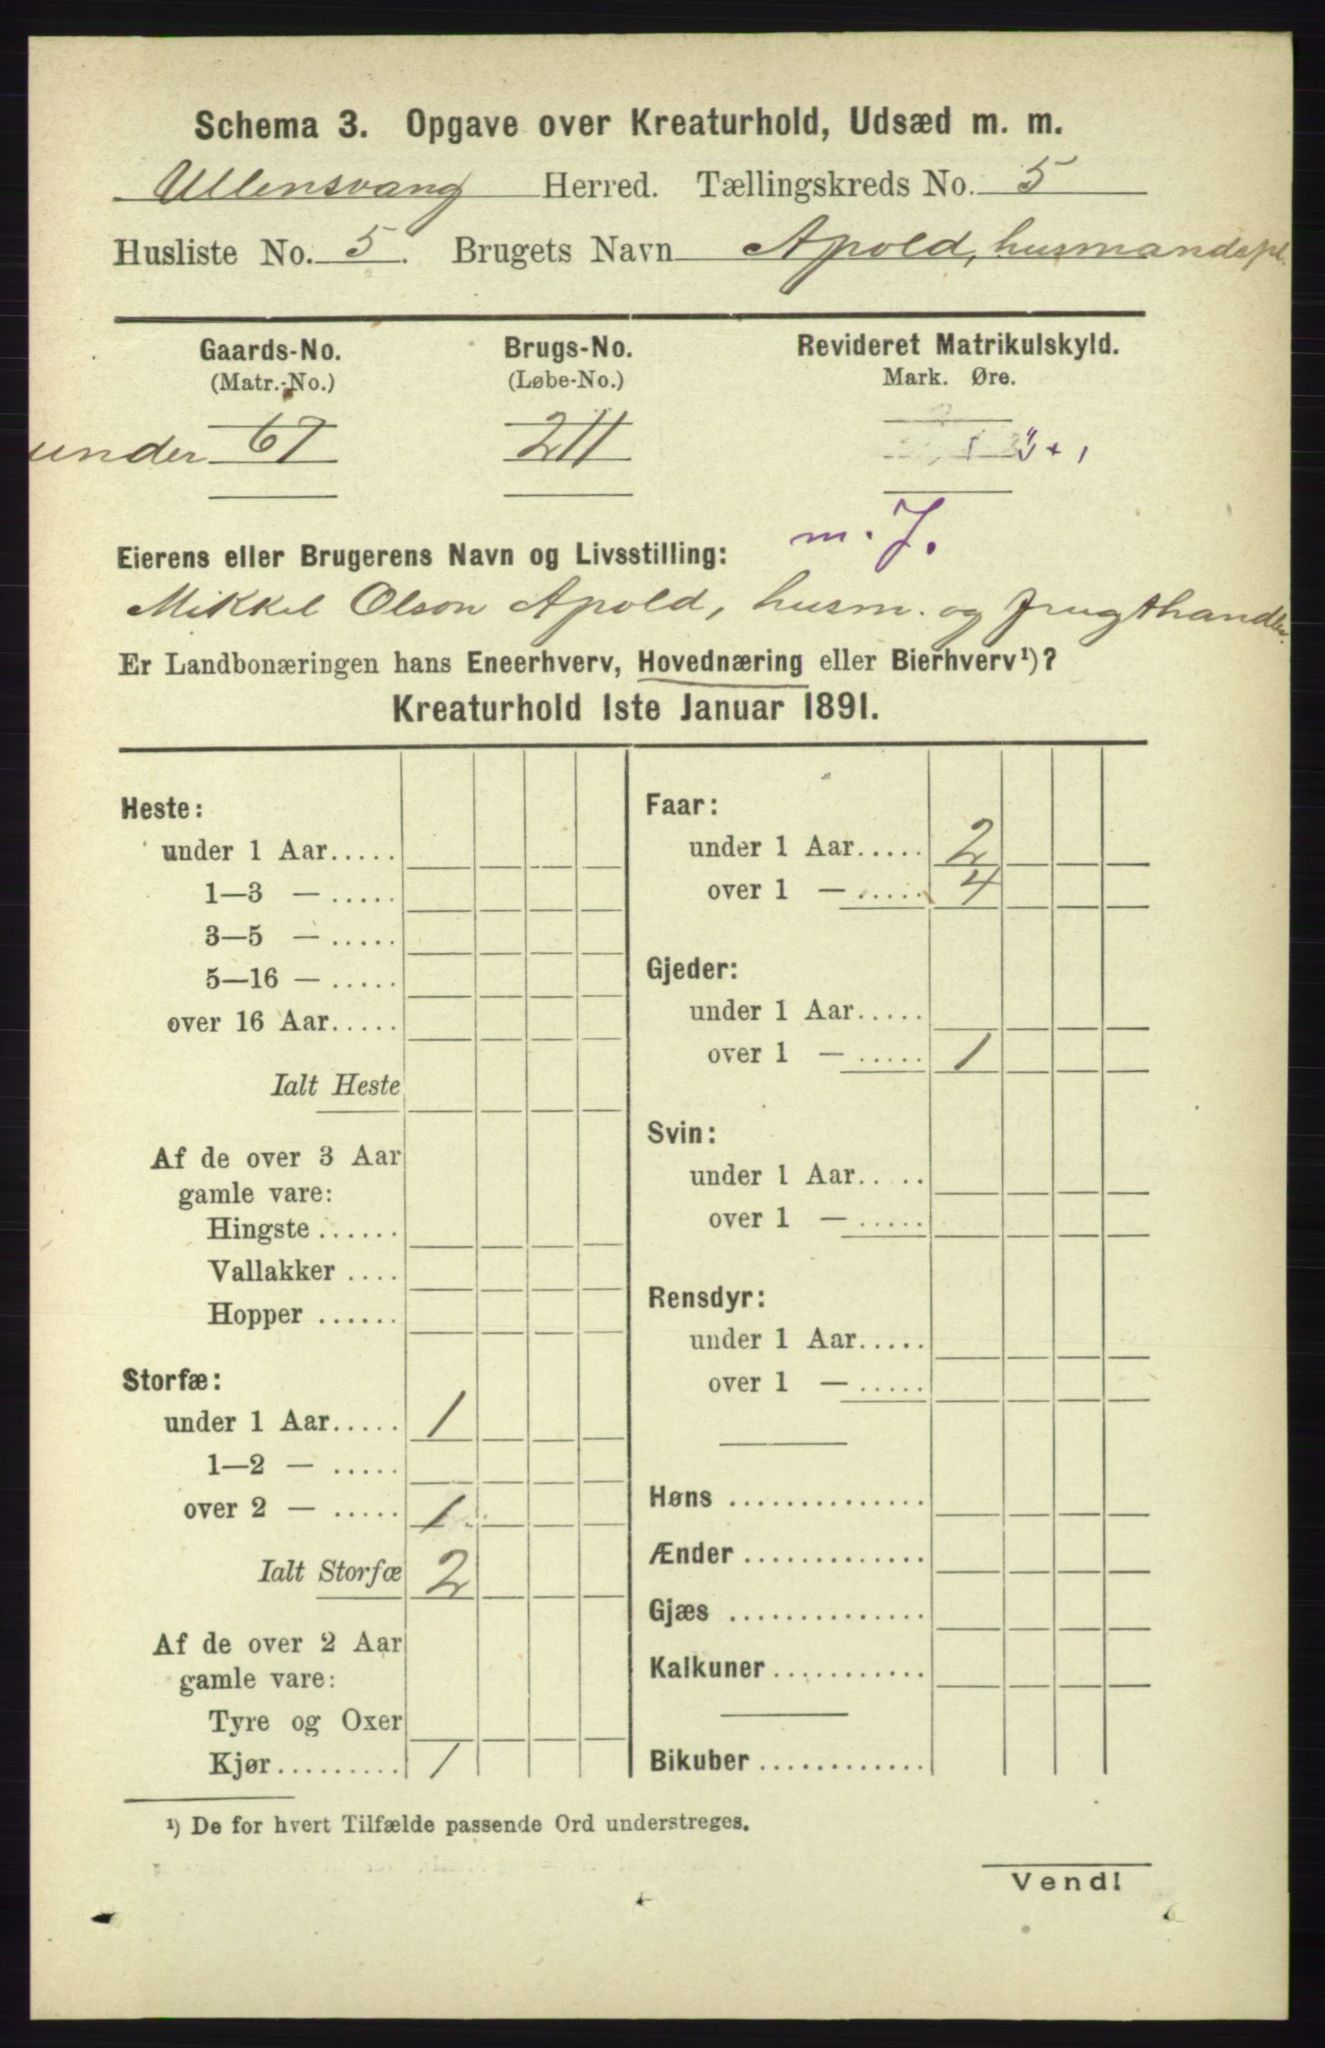 Schema 3. Opgave over Kreaturhold, Udsæd m. m.
Ullensvang Herred. Tællingskreds No. 5
Husliste No. 5. Brugets Navn Apold, husmandspl.
Gaards-No. Brugs-No. Revideret Matrikulskyld.
(Matr.-No.) (Løbe-No.) Mark. Øre.
under 67 2 11
m. J.
Eierens eller Brugerens Navn og Livsstilling:
Mikkel Olson Apold, husm. og frugthandler.
Er Landbonæringen hans Eneerhverv, Hovednæring eller Bierhverv¹)?
Kreaturhold 1ste Januar 1891.
Heste:
under 1 Aar.....
1—3 — .....
3—5 — .....
5—16 — .....
over 16 Aar.....
Ialt Heste
Af de over 3 Aar
gamle vare:
Hingste ......
Vallakker ....
Hopper ......
Storfæ:
under 1 Aar..... 1
1—2 — .....
over 2 — ..... 1
Ialt Storfæ 2
Af de over 2 Aar
gamle vare:
Tyre og Oxer
Kjør......... 1
Faar:
under 1 Aar..... 2
over 1 — ..... 4
Gjeder:
under 1 Aar.....
over 1 — ..... 1
Svin:
under 1 Aar.....
over 1 — .....
Rensdyr:
under 1 Aar.....
over 1 — .....
Høns ..............
Ænder .............
Gjæs ..............
Kalkuner...........
Bikuber ............
¹) De for hvert Tilfælde passende Ord understreges.
Vend!